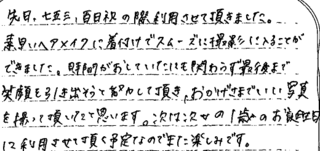 先日、七五三、百日祝の際利用させて頂きました。
素早いヘアメイクに着付けでスムーズに撮影に入ることが
できました。時間がおしていたにも関わらず最後まで
笑顔を引き出そうと努力して頂き、おかげさまでいい写真
を撮って頂いたと思います。次は次女の1歳のお誕生日
に利用させて頂く予定なのでまた楽しみです。